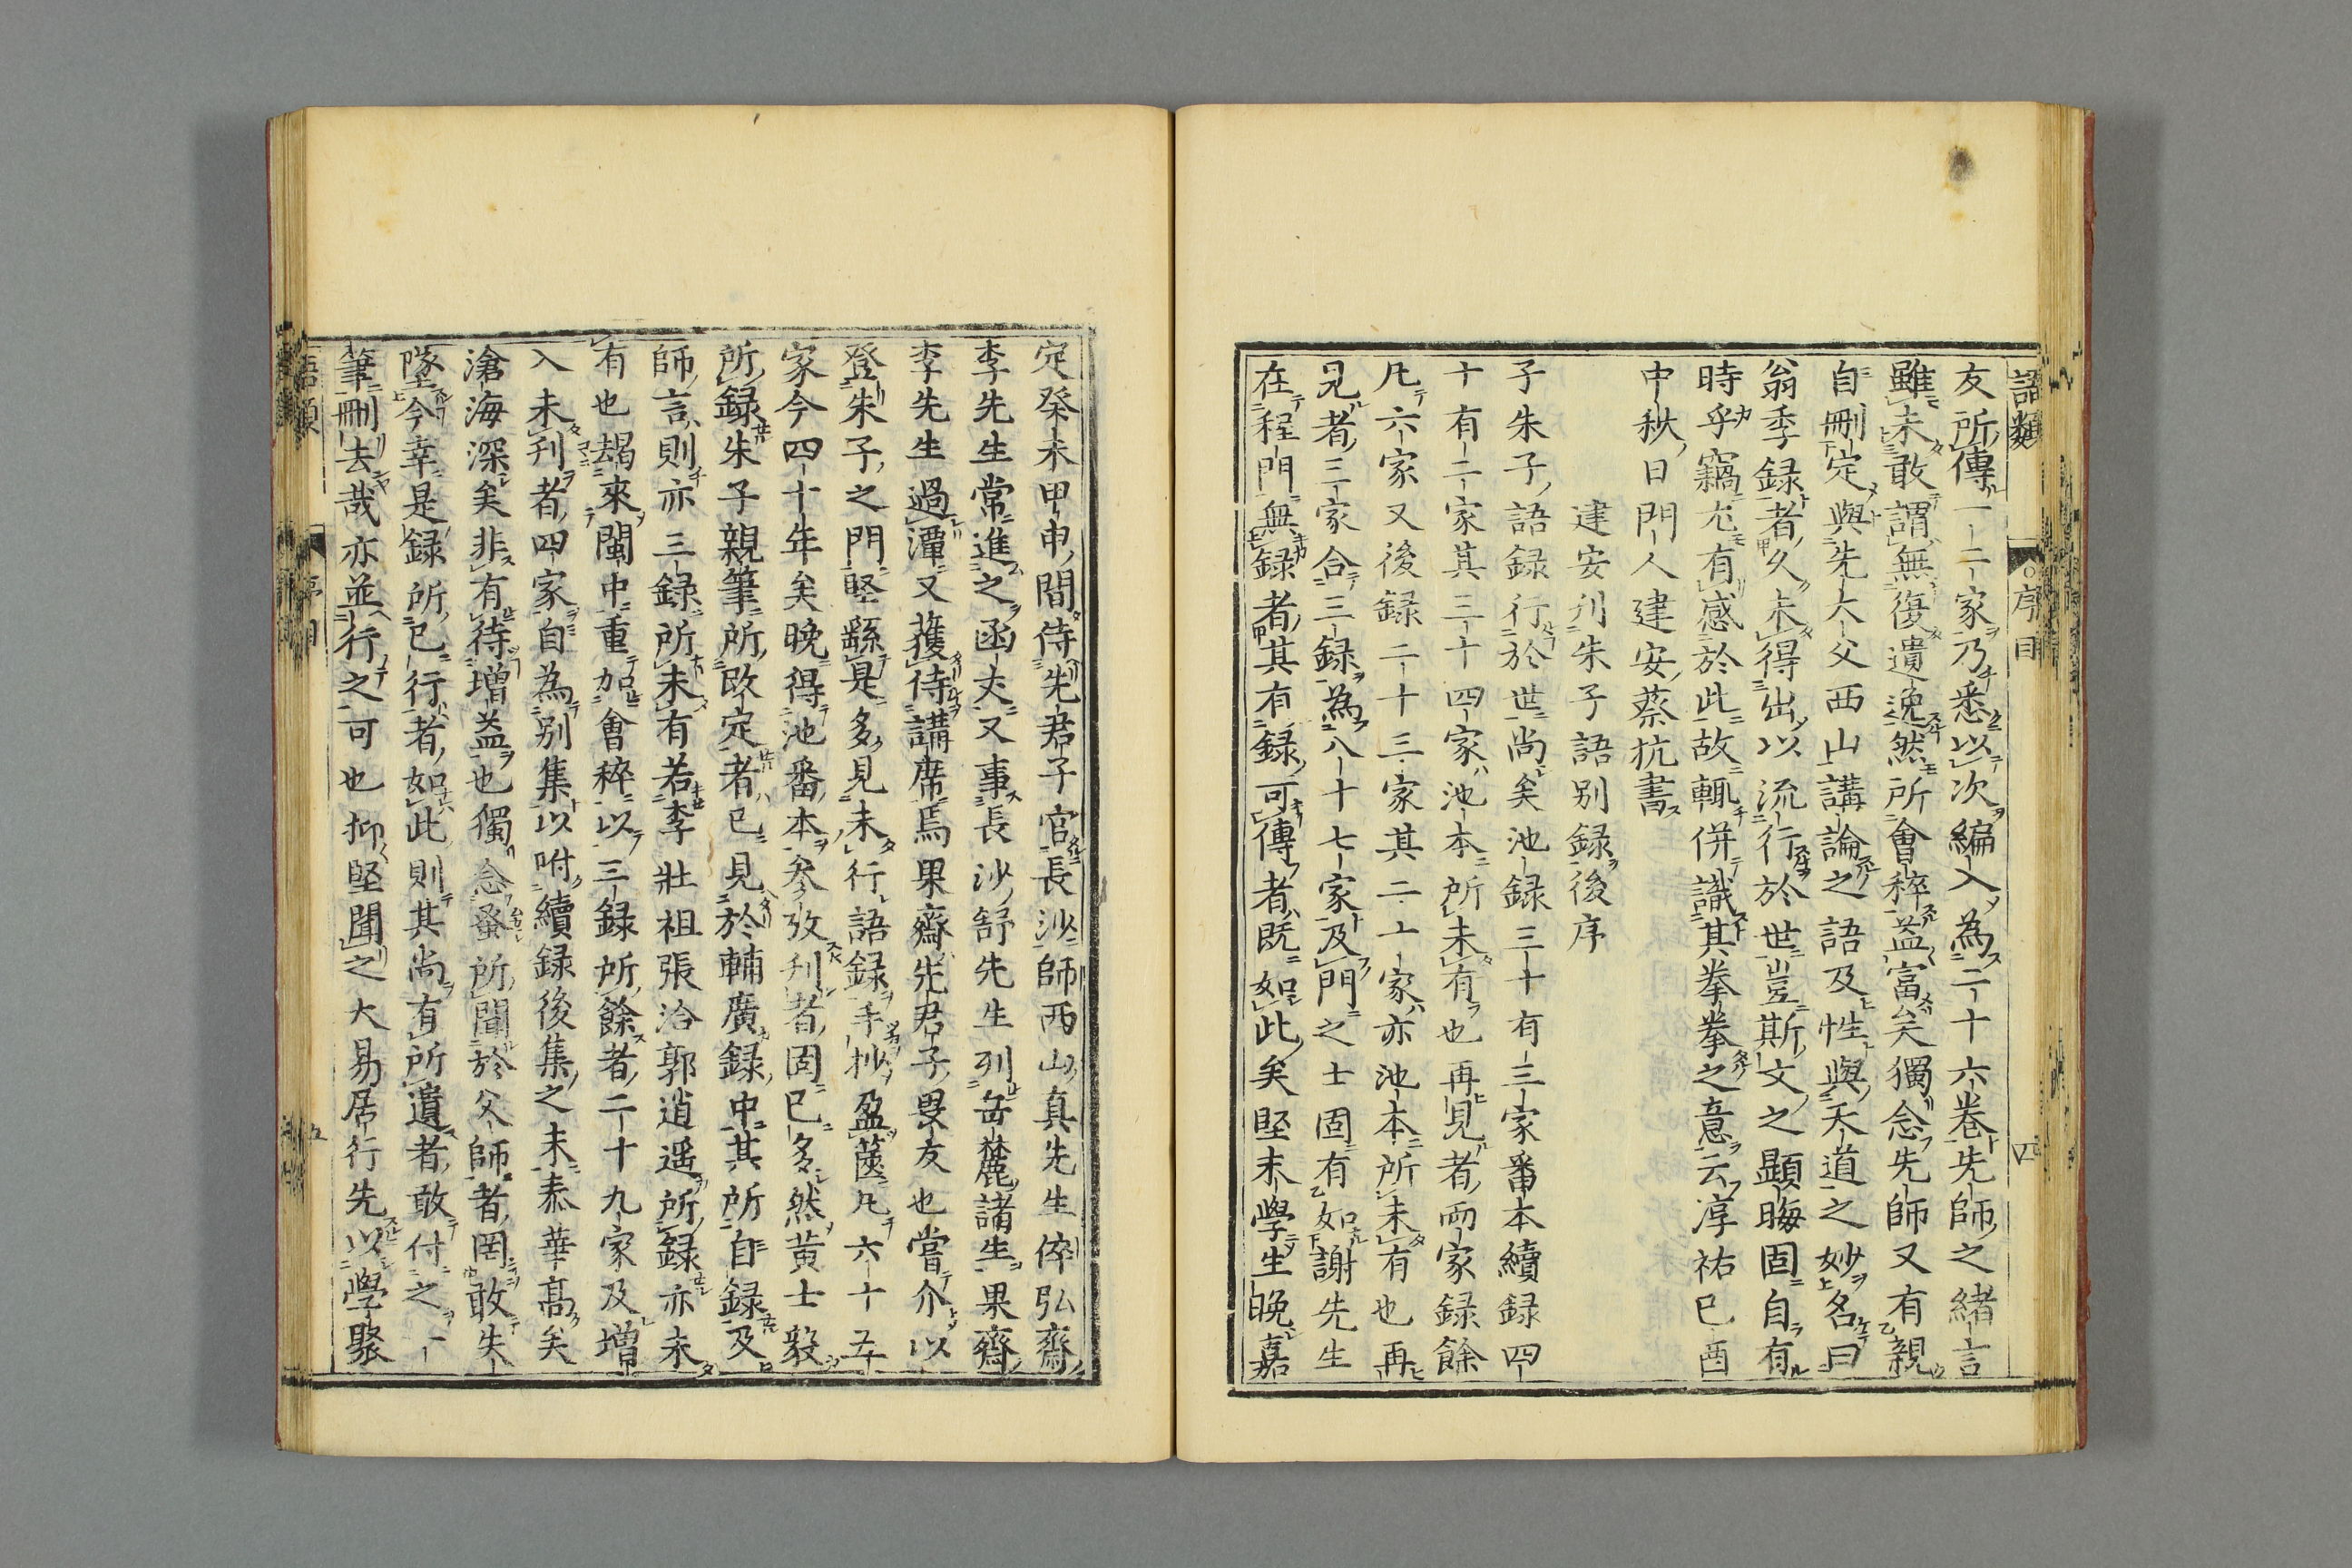 語類 ○序目 四
友所傳一二家乃悉以次編入為二十六卷先師之緒言
雖未敢謂無復遺逸然所會稡益富矣獨念先師又有親
自刪定與先大父西山講論之語及性與天道之妙名曰
翁季録者久未得出以流行於世豈斯文之顯晦固自有
時乎竊尤有感於此故輒併識其拳拳之意云淳祐己酉
中秋日門人建安蔡抗書
建安刋朱子語别録後序
子朱子語録行於世尚矣池録三十有三家番本續録四
十有二家其三十四家池本所未有也再見者両家録餘
凡六家又後録二十三家其二十家亦池本所未有也再
見者三家合三録為八十七家及門之士固有如謝先生
在程門無録者其有録可傳者既如此矣堅末學生晚嘉
定癸未甲申間侍先君子官長沙師西山真先生倅弘齋
李先生常進之函丈又事長沙舒先生列岳麓諸生果齋
李先生過潭又獲侍講席焉果齋先君子畏友也嘗介以
登朱子之門堅繇是多見未行語録手抄盈篋凡六十五
家今四十年矣晚得池番本參攷刋者固已多然黄士毅
所録朱子親筆所改定者已見於輔廣録中其所自録及
師言則亦三録所未有若李壯祖張洽郭逍遥所録亦未
有也朅來閩中重加會稡以三録所餘者二十九家及增
入未刋者四家自為别集以附續録後集之末泰華髙矣
滄海深矣非有待增益也獨念蚤所聞於父師者罔敢失
墜今幸是録所已行者如此則其尚有所遺者敢付之一
筆刪去哉亦並行之可也抑堅聞之大易居行先以學聚